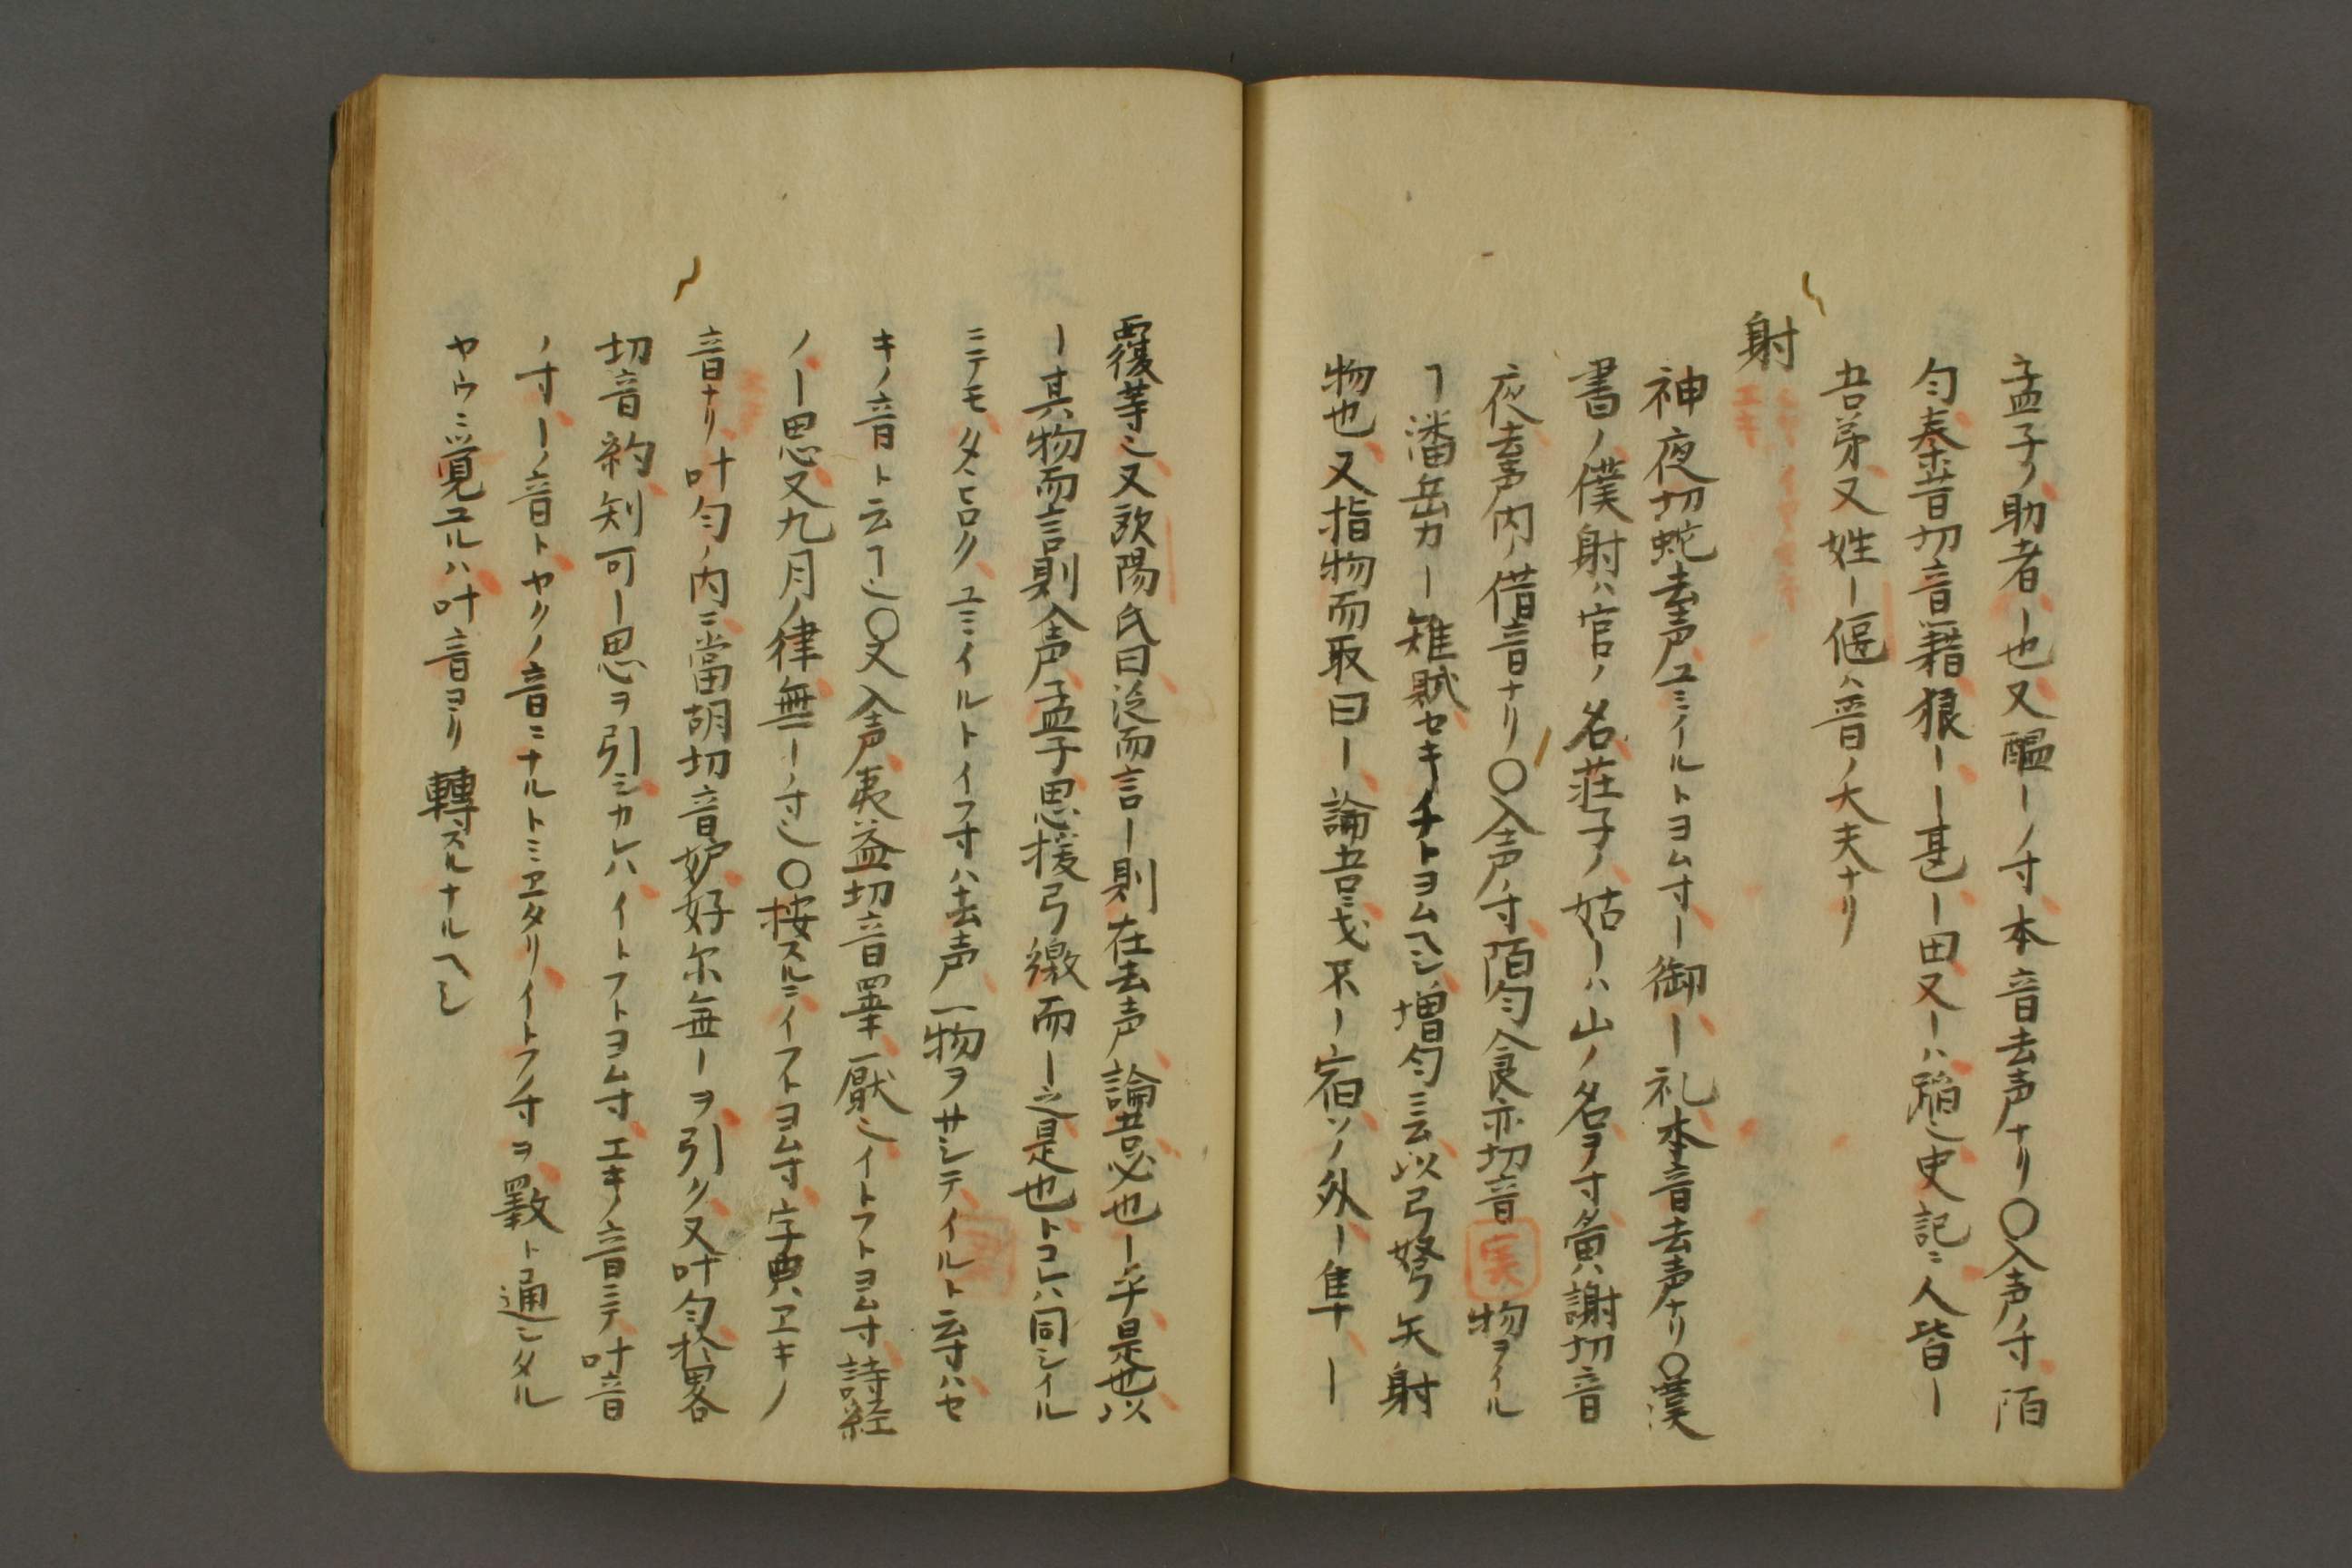 孟子ノ助者ー也又醞ーノ寸本音去声ナリ〇入声ノ寸陌
匀秦昔切音籍狼ーー甚ー田又ーハ蹈也史記ニ人皆ー
吾弟又姓ー偃ハ晋ノ大夫ナリ
射
神夜切蛇去声ユミイルトヨム寸ー御ー礼本音去声ナリ〇漢
書ノ僕射ハ官ノ名荘子ノ姑ーハ山ノ名ヲ寸黄謝切音
夜去声ノ内ノ借音ナリ〇入声ノ寸陌匀食亦切音実物ヲイル
ヿ潘岳カー雉賦セキチトヨムヘシ増匀ニ云以弓弩矢射
物也又指物而取曰ー論吾ニ弋不ー宿ソノ外ー隼ー
覆等也又欧陽氏曰泛而言ー則在去声論吾必也ー乎是也以
ー其物而言則入声孟子思援弓繳而ー之是也トコレハ同シイル
ニテモタヒロクユミイルトイフ寸ハ去声一物ヲサシテイルト云寸ハセ
キノ音ト云ヿ也〇又入声夷益切音睪厭也イトフトヨム寸詩経
ノー思又九月ノ律無ーノ寸也〇按スルニイフトヨム寸字典ハエキノ
音ナリ叶匀ノ内ニ當胡切音妒好尓無ーヲ引ク又叶匀挌畧
切音約矧可ー思ヲ引シカレハイトフトヨム寸エキノ音ニテ叶音
ノ寸ーノ音トヤクノ音ニナルトミエタリイトフノ寸ヲ斁ト通シタル
ヤウニ覚ユルハ叶音ヨリ轉スルナルヘシ